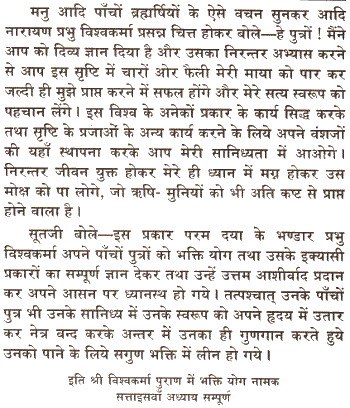 मनु आदि पाँचों ब्रह्मर्षियों के ऐसे वचन सुनकर आदि
नारायण प्रभु विश्वकर्मा प्रसन्न चित्त होकर बोले—हे पुत्रों ! मैंने
आप को दिव्य ज्ञान दिया है और उसका निरन्तर अभ्यास करने
से आप इस सृष्टि में चारों ओर फैली मेरी माया को पार कर
जल्दी ही मुझे प्राप्त करने में सफल होंगे और मेरे सत्य स्वरूप को
पहचान लेंगे। इस विश्व के अनेकों प्रकार के कार्य सिद्ध करके
तथा सृष्टि के प्रजाओं के अन्य कार्य करने के लिये अपने वंशजों
की यहाँ स्थापना करके आप मेरी सानिध्यता में आओगे।
निरन्तर जीवन युक्त होकर मेरे ही ध्यान में मग्न होकर उस
मोक्ष को पा लोगे, जो ऋषि- मुनियों को भी अति कष्ट से प्राप्त
होने वाला है।
सूतजी बोले—इस प्रकार परम दया के भण्डार प्रभु
विश्वकर्मा अपने पाँचों पुत्रों को भक्ति योग तथा उसके इक्यासी
प्रकारों का सम्पूर्ण ज्ञान देकर तथा उन्हें उत्तम आशीर्वाद प्रदान
कर अपने आसन पर ध्यानस्थ हो गये। तत्पश्चात् उनके पाँचों
पुत्र भी उनके सानिध्य में उनके स्वरूप को अपने हृदय में उतार
कर नेत्र वन्द करके अन्तर में उनका ही गुणगान करते हुये
उनको पाने के लिये सगुण भक्ति में लीन हो गये।
इति श्री विश्वकर्मा पुराण में भक्ति योग नामक
सत्ताइसवाँ अध्याय सम्पूर्ण